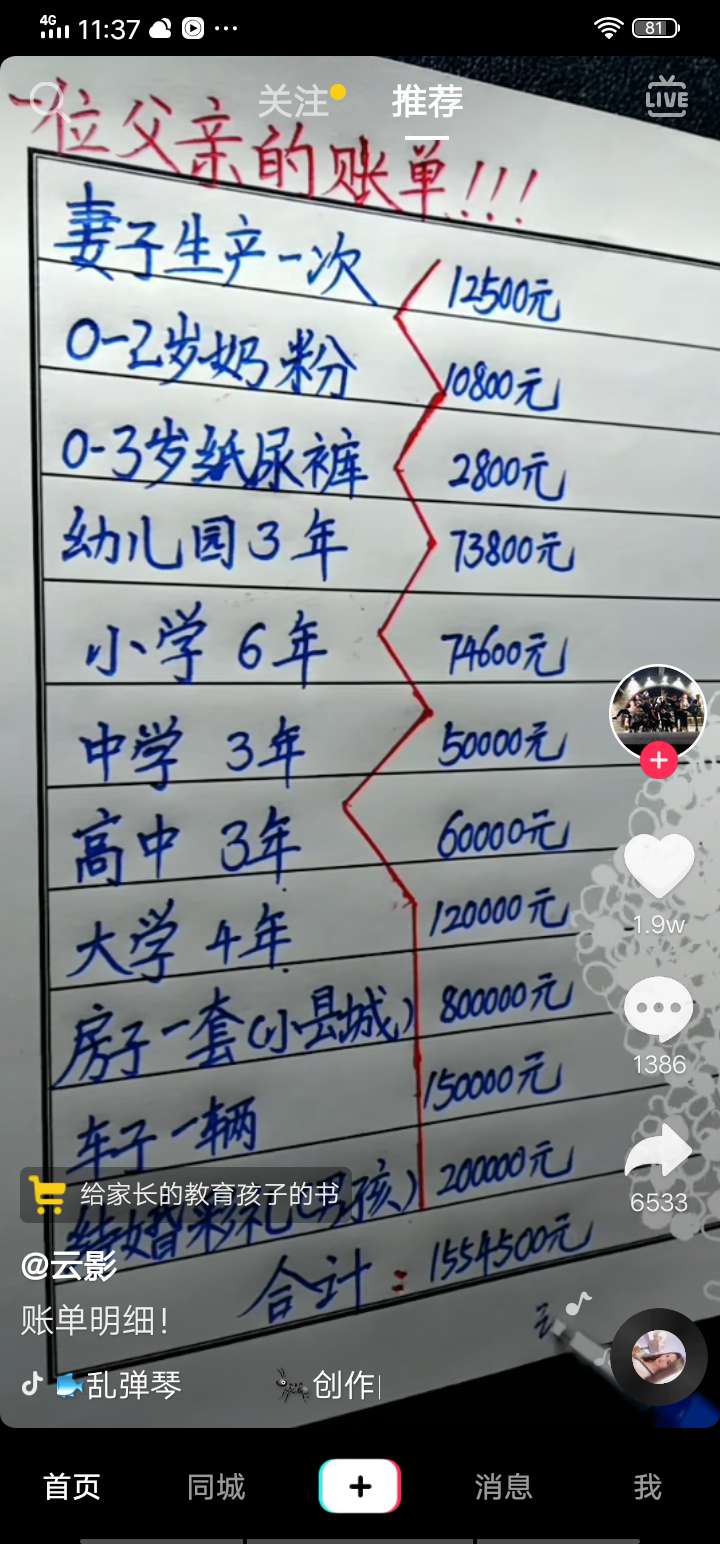 4G 11:37 81
关注 推荐 LIVE
一位父亲的账单!!!
妻子生产一次 12500元
0-2岁奶粉 10800元
0-3岁纸尿裤 2800元
幼儿园3年 73800元
小学 6年 74600元
中学 3年 50000元
高中 3年 60000元
大学 4年 120000元
房子一套(小县城) 800000元
车子一辆 150000元
结婚彩礼(男孩) 200000元
合计:1554500元
1.9w
1386
6533
给家长的教育孩子的书
@云影
账单明细!
乱弹琴 创作
首页 同城 消息 我